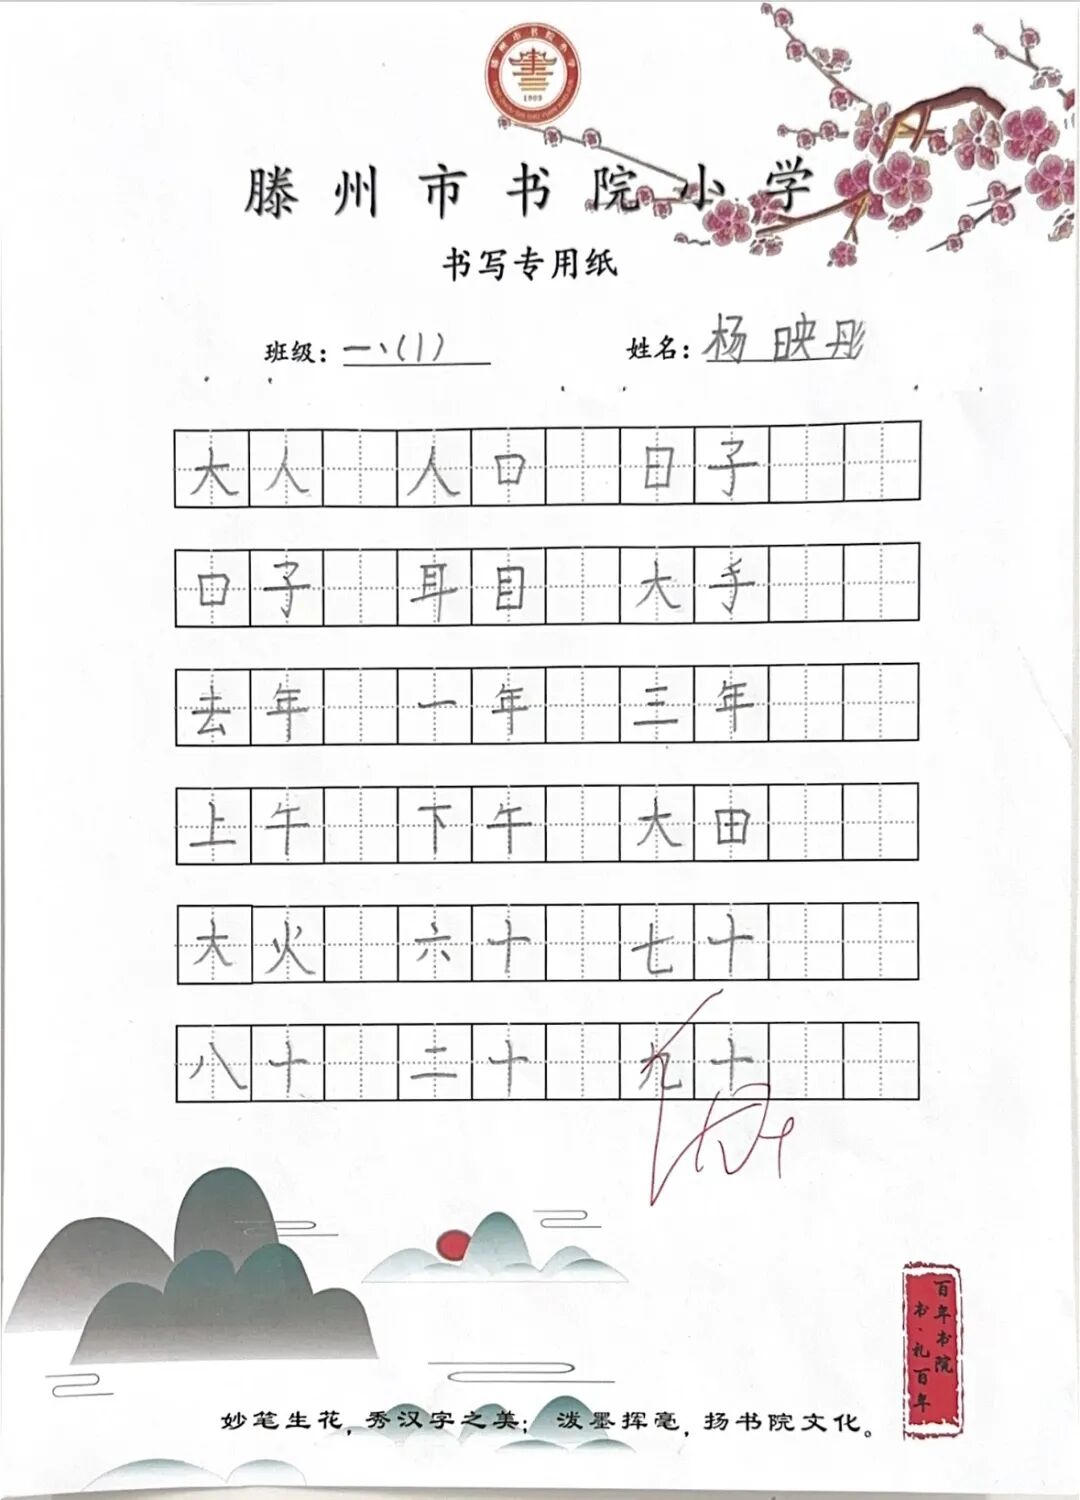 滕州市书院小学
1903
滕州市书院小学
书写专用纸
班级：一、(1) 姓名：杨映彤
大人 人口 日子
口子 耳目 大手
去年 一年 三年
上午 下午 大田
大火 六十 七十
八十 二十 九十
百年书院
书·礼百年
妙笔生花，秀汉字之美； 泼墨挥毫，扬书院文化。